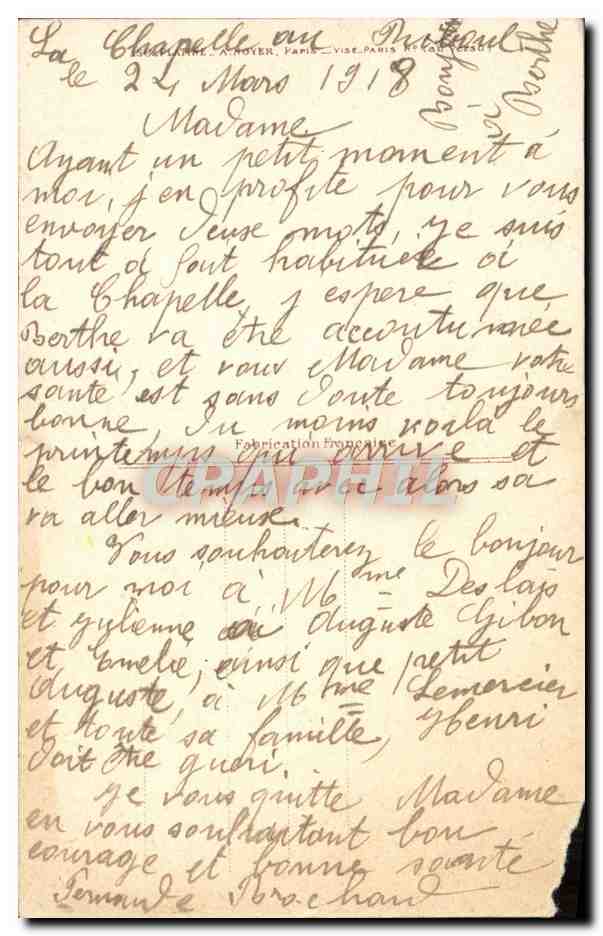 La Chapelle au Riboul
A. NOYER, Paris - VISÉ PARIS No
le 24 Mars 1918
Bonj
à
Berthe
Madame
Ayant un petit moment à
moi, j'en profite pour vous
envoyer deuse mots, je suis
tout à fait habituée à
la Chapelle, j espere que
Berthe va être accoutumée
aussi, et vous Madame votre
santé est sans doute toujours
bonne, du moins voilà le
Fabrication Française
printemps qui arrive et
CPAPHIL
le bon temps avec alors sa
va aller mieux.
Vous souhaiterez le bonjour
pour moi à Mme Deslais
et Gylienne Auguste Gibon
et Emelie, ainsi que petit
Auguste, à Mme Lemercier
et toute sa famille, Henri
doit être guéri.
Je vous quitte Madame
en vous souhaitant bon
courage et bonne santé
Fernande Brochard